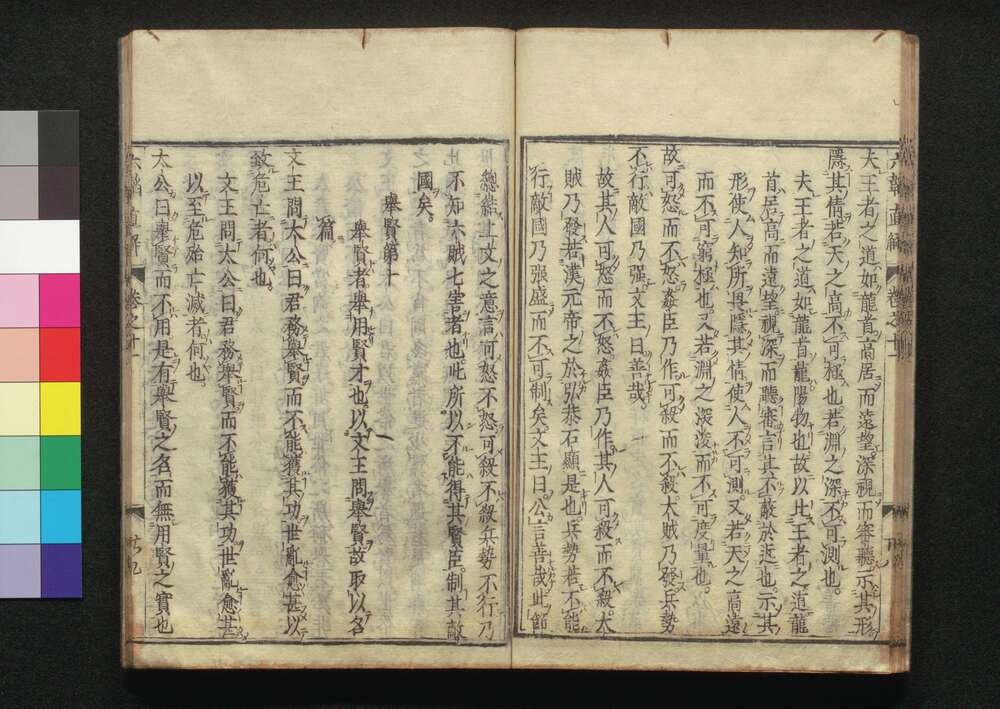 大王者之道如龍首高居而遠望深視而審聽示其形
隱其情若天之高不可極也若淵之深不可測也
夫王者之道如龍首龍陽物也故以比王者之道龍
首居高而遠望視深而聽審言其不蔽於近也示其
形使人知所畏隱其情使人不可測又若天之高遠
而不可窮極也又若淵之深浚而不可度量也
故可怒而不怒姦臣乃作可殺而不殺大賊乃發兵勢
不行敵國乃强文王曰善哉
故其人可怒而不怒姦臣乃作其人可殺而不殺大
賊乃發若漢元帝之於弘恭石顯是也兵勢若不能
行敵國乃張盛而不可制矣文王曰公言善哉此節
總結上文之意言可怒不怒可殺不殺兵勢不行乃
不知六賊七害者也此所以不能得其賢臣制其敵
國矣
舉賢第十
舉賢者舉用賢才也以文王問舉賢故取以名
篇
文王問太公曰君務舉賢而不能獲其功世亂愈甚以
致危亡者何也
文王問太公曰君務舉賢而不能獲其功世亂愈甚
以至危殆亡滅者何也
太公曰舉賢而不用是有舉賢之名而無用賢之實也
六韜直解 卷之十一